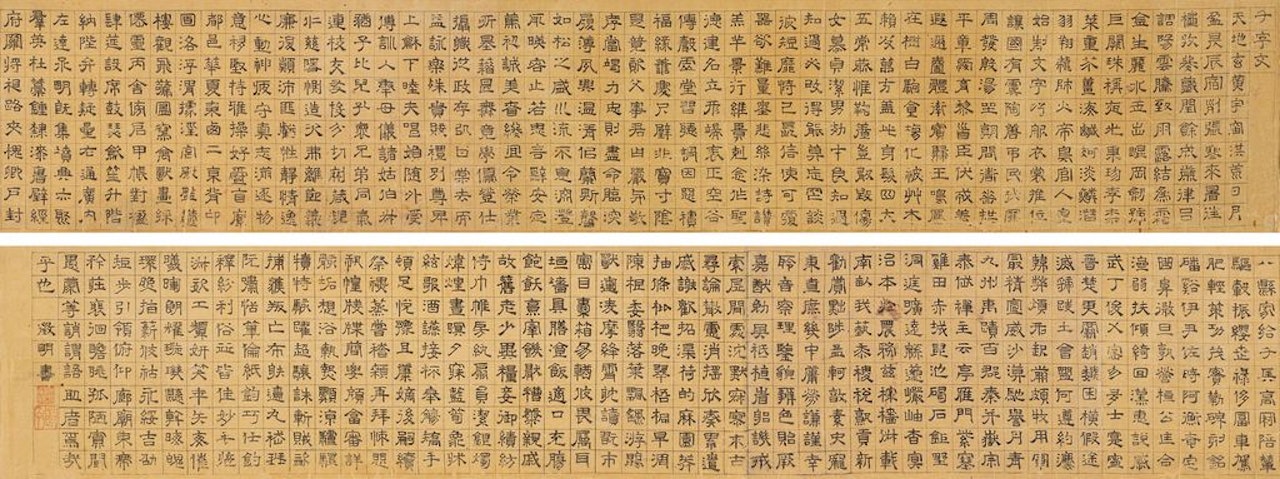 千字文
天地玄黃宇宙洪荒日月
盈昃辰宿列張寒來暑往
秋收冬藏閏餘成歲律呂
調陽雲騰致雨露結為霜
金生麗水玉出崑岡劍號
巨闕珠稱夜光果珍李柰
菜重芥薑海鹹河淡鱗潛
羽翔龍師火帝鳥官人皇
始制文字乃服衣裳推位
讓國有虞陶唐弔民伐罪
周發殷湯坐朝問道垂拱
平章愛育黎首臣伏戎羌
遐邇壹體率賓歸王鳴鳳
在樹白駒食場化被草木
賴及萬方蓋此身髮四大
五常恭惟鞠養豈敢毀傷
女慕貞潔男効才良知過
知過必改得能莫忘罔談
彼短靡恃己長信使可覆
器欲難量墨悲絲染詩讚
羔羊景行維賢剋念作聖
德建名立形端表正空谷
傳聲虛堂習聽禍因惡積
福緣善慶尺璧非寶寸陰
是競資父事君曰嚴與敬
孝當竭力忠則盡命臨深
履薄夙興溫凊似蘭斯馨
如松之盛川流不息淵澄
取映容止若思言辭安定
篤初誠美慎終宜令榮業
所基籍甚無竟學優登仕
攝職從政存以甘棠去而
益詠樂殊貴賤禮別尊卑
上和下睦夫唱婦隨外受
傅訓入奉母儀諸姑伯叔
猶子比兒孔懷兄弟同氣
連枝交友投分切磨箴規
仁慈隱惻造次弗離節義
廉退顛沛匪虧性靜情逸
心動神疲守真志滿逐物
意移堅持雅操好爵自縻
都邑華夏東西二京背邙
面洛浮渭據涇宮殿盤鬱
樓觀飛驚圖寫禽獸畫綵
仙靈丙舍傍啟甲帳對楹
肆筵設席鼓瑟吹笙升階
納陛弁轉疑星右通廣內
左達承明既集墳典亦聚
羣英杜稾鍾隸漆書壁經
府羅將相路夾槐卿戶封
八縣家給千兵高冠陪輦
驅轂振纓世祿侈富車駕
肥輕策功茂實勒碑刻銘
磻谿伊尹佐時阿衡奄宅
曲阜微旦孰營桓公匡合
濟弱扶傾綺回漢惠說感
武丁俊乂密勿多士寔寧
晉楚更霸趙魏困橫假途
滅虢踐土會盟何遵約法
韓弊煩刑起翦頗牧用軍
最精宣威沙漠馳譽丹青
九州禹蹟百郡秦并嶽宗
泰岱禪主云亭雁門紫塞
雞田赤城昆池碣石鉅野
洞庭曠遠緜邈巖岫杳冥
治本於農務茲稼穡俶載
南畝我藝黍稷稅熟貢新
勸賞黜陟孟軻敦素史魚
秉直庶幾中庸勞謙謹敕
聆音察理鑒貌辨色貽厥
嘉猷勉其祗植省躬譏誡
索居閒處沉默寂寥求古
尋論散慮逍遙欣奏累遣
慼謝歡招渠荷的歷園莽
抽條枇杷晚翠梧桐早凋
陳根委翳落葉飄颻游鵾
獨運凌摩絳霄耽讀翫市
寓目囊箱易輶攸畏屬耳
垣墻具膳飡飯適口充腸
飽飫烹宰飢厭糟糠親戚
故舊老少異糧妾御績紡
侍巾帷房紈扇員潔銀燭
煒煌晝眠夕寐藍筍象牀
絃歌酒讌接杯舉觴矯手
頓足悅豫且康嫡後嗣續
祭祀蒸嘗稽顙再拜悚懼
恐惶牋牒簡要顧答審詳
骸垢想浴執熱願涼驢騾
犢特駭躍超驤誅斬賊盜
捕獲叛亡布射遼丸嵇琴
阮嘯恬筆倫紙鈞巧任釣
釋紛利俗並皆佳妙毛施
淑姿工顰妍笑年矢每催
曦暉朗耀璇璣懸斡晦魄
環照指薪脩祜永綏吉劭
矩步引領俯仰廊廟束帶
矜莊徘徊瞻眺孤陋寡聞
愚蒙等誚謂語助者焉哉
乎也
徵明書